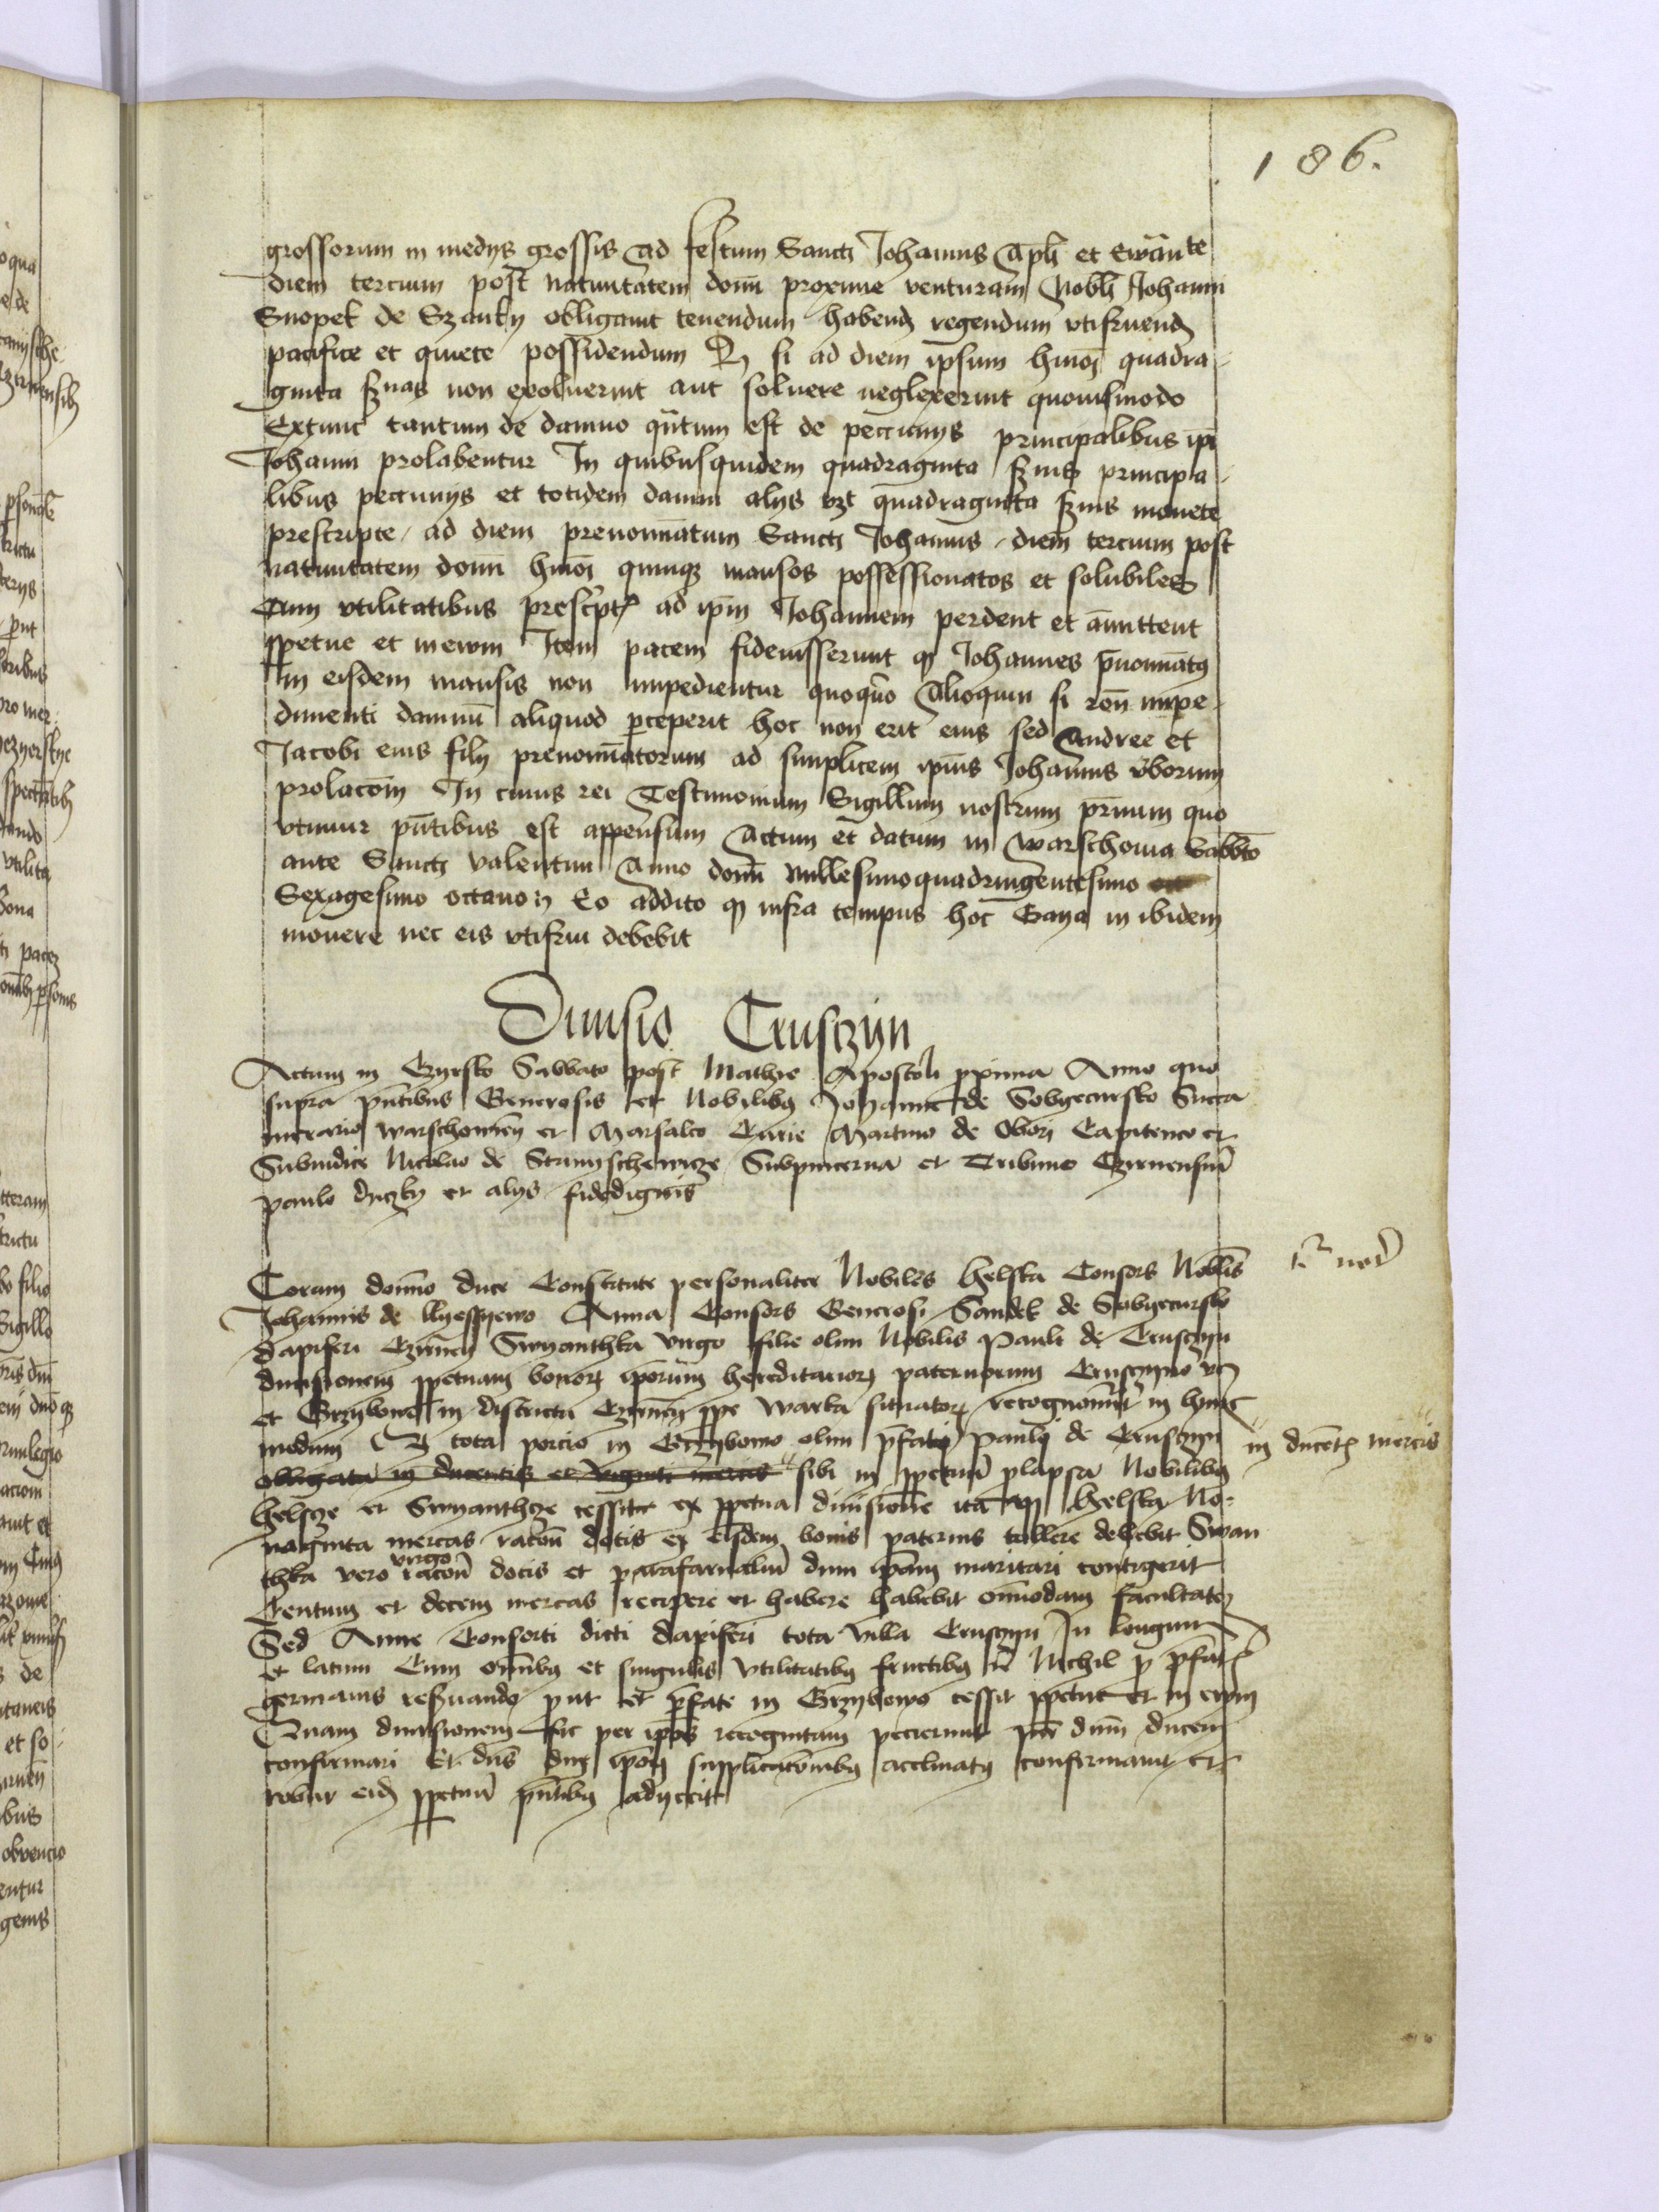 186.
grossorum in medys grossis ad festum Sancti Johannis Apli et Ewante
diem tercium post natiuitatem domi proxime venturam Nobli Johanni
Snopek de Szanky obligant tenendum habend regendum vtifruend
pacifice et quiete possidendum Et si ad diem ipsum hmoi quadra-
ginta sznas non exoluerint aut soluere neglexerint quouismodo
Extunc tantum de damno qntum est de peccunys principalibus ipi
Johanni prolabentur In quibusquidem quadraginta sznis principa-
libus peccunys et totidem damni alys vzt quadraginta sznis monete
prescripte ad diem prenominatum Sancti Johannis diem tercium post
natiuitatem domi hmoi quinqz mansos possessionatos et solubiles
Cum vtilitatibus prescriptz ad ipm Johannem perdent et amittent
ppetue et in ewm Item pacem fideiusserunt qz Johannes prenominatus
In eisdem mansis non impedientur quoquo Alioquin si ron impe-
dimenti damnu aliquod perceperit hoc non erit eius sed Andree et
Jacobi eius filij prenominatorum ad simplicem ipius Johannis vborum
prolacom In cuius rei Testimonium Sigillum nostrum prnum quo
vtimur pntibus est appensum Actum et datum in Warschouia Sabbto
ante Sancti valentini Anno domi Millesimoquadringentesimo
Sexagesimo octauo Eo addito qz infra tempus hoc in ibidem
mouere nec eis vtifrui debebit
Diuisio Cruszyn
Actum in Czyrsko Sabbato post Mathie Apostoli pxima Anno quo
supra pntibus Generosis et Nobilibus Johanne de Sobyecursko Succa
merario Warschowien et Marsalco Curie Martino de Obori Capiteneo et
Subiudice Nicolao de Strunyschewicze Subpincerna et Tribuno Czirnensium
paulo duczky et alys fidedignis
Coram domno duce Constitute personaliter Nobiles helska Consors Noblis
Johannis de Anna Consors Generosi Sandek de Sobyecursko
dapiferi Czirnen Swyanthka virgo filie olim Nobilis Pauli de Cruszyn
diuisionem ppetuam bonorz iporum hereditariorz paternorum Cruszyno
et Grzybowo in districtu Czirnen ppe Warka situatorz recognouerunt in hunc
modum Qz tota porcio in Grzybowo olim pfati Pauli de Cruszyn in ducentz mercis
obligata in ducentis et viginti mercis sibi in ppetuum plapsa Nobilibus
helscze et Swyanthcze cessit ex ppetua diuisione ita qz helska No-
naginta mercas racione dotis ex eisdem bonis paternis tollere debebit Swan
thka vero virgo racone dotis et parafarnalium dum ipam maritari contigerit
Centum et decem mercas recipere et habere habebit omnimodam facultatez
Sed Anne Consorti dicti dapiferi tota villa Cruszyn In longum
et latum Cum omnibus et singulis vtilitatibus fructibus Nichil p pfatis
germanis reseruando put et pfate in Grzybowo cessit ppetue et in ewm
Quam diuisionem sic per ipos recognitam pecierunt dnm ducem
confirmari Et dns dux iporz supplicacionibus acclinatus confirmauit et
robur eidem ppetuum pntibus adyecit